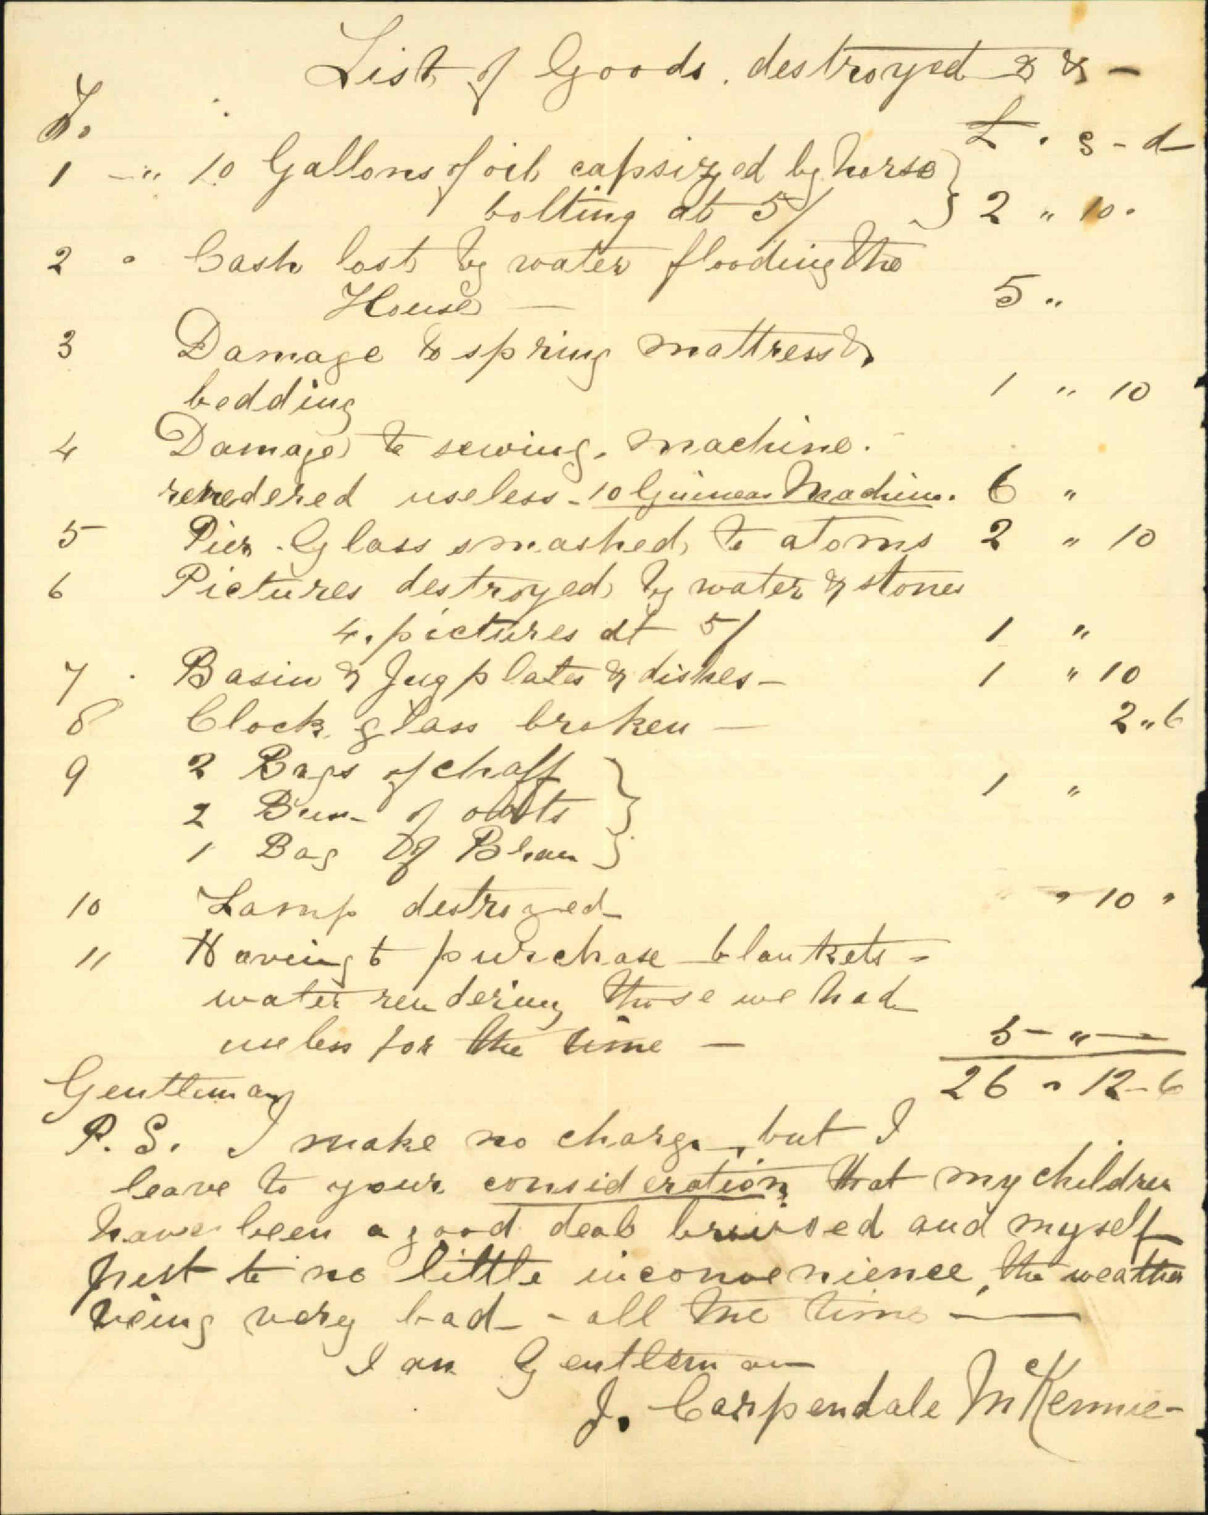 List of Goods destroyed & & -
£ . s - d
1 - " 10 Gallons of oil capsized by horse
bolting at 5/ 2 " 10.
2 " Cash lost by water flooding the
House - 5 "
3 Damage to spring mattress &
bedding 1 " 10
4 Damage to sewing machine.
renedered useless - 10 Guineas Machine. 6 "
5 Pier Glass smashed to atoms 2 " 10
6 Pictures destroyed by water & stones
4. pictures at 5/ 1 "
7 Basin & Jug plates & dishes - 1 " 10
8 Clock glass broken - 2 " 6
9 2 Bags of chaff 1 "
2 of oats
1 Bag Of Bran
10 Lamp destroyed " 10 "
11 Having to purchase blankets -
water rendering those we had
useless for the time - 5 - " -
26 " 12 - 6
Gentleman
P.S. I make no charge, but I
leave to your consideration that my children
have been a good deal bruised and myself
put to no little inconvenience, the weather
being very bad - - all the time -
I am Gentleman
J. Carpendale McKennie -